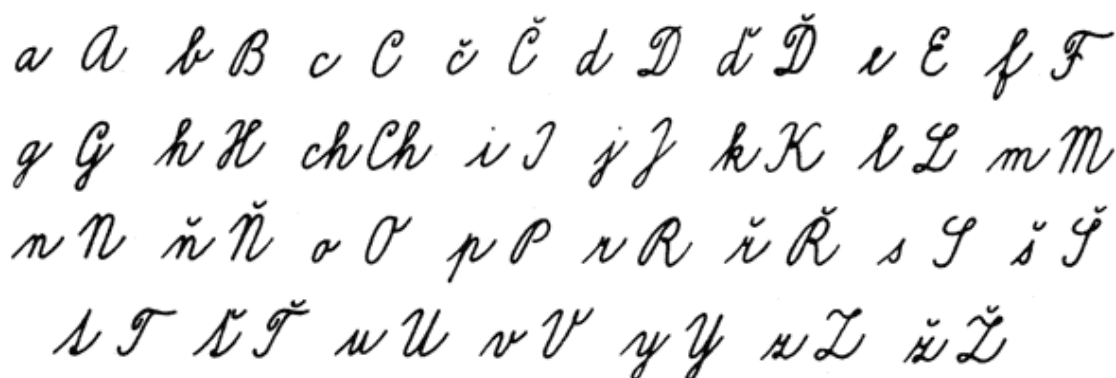 a A b B c C č Č d D ď Ď e E f F
g G h H ch Ch i I j J k K l L m M
n N ň Ň o O p P r R ř Ř s S š Š
t T ť Ť u U v V y Y z Z ž Ž